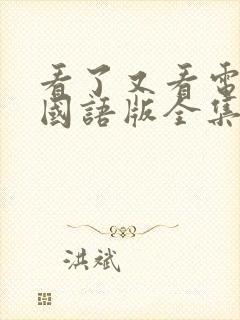 看了又看電
國語版全集
洪斌